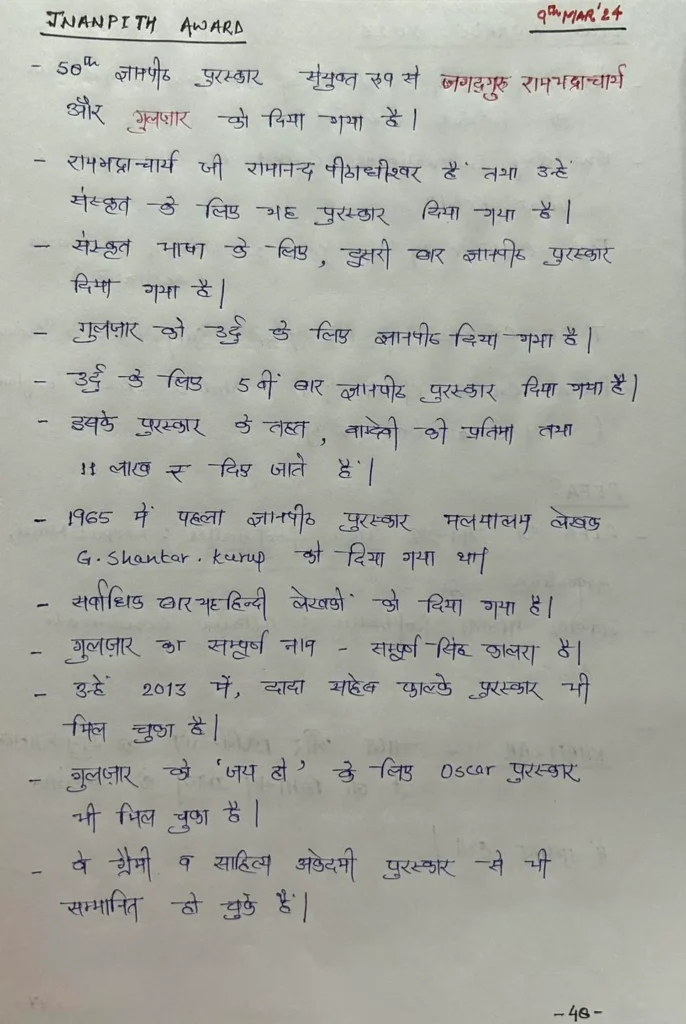 JNANPITH AWARD
9th MAR'24
- 58th ज्ञानपीठ पुरस्कार संयुक्त रूप से जगद्गुरु रामभद्राचार्य
और गुलज़ार को दिया गया है|
- रामभद्राचार्य जी रामानन्द पीठाधीश्वर हैं तथा उन्हें
संस्कृत के लिए यह पुरस्कार दिया गया है|
- संस्कृत भाषा के लिए, दुसरी बार ज्ञानपीठ पुरस्कार
दिया गया है|
- गुलज़ार को उर्दु के लिए ज्ञानपीठ दिया गया है|
- उर्दु के लिए 5 वीं बार ज्ञानपीठ पुरस्कार दिया गया है|
- इसके पुरस्कार के तहत, वाग्देवी की प्रतिमा तथा
11 लाख रु दिए जाते हैं|
- 1965 में पहला ज्ञानपीठ पुरस्कार मलयालम लेखक
G. Shankar. Kurup को दिया गया था|
- सर्वाधिक बार यह हिन्दी लेखकों को दिया गया है|
- गुलज़ार का सम्पूर्ण नाम - सम्पूर्ण सिंह कालरा है|
- उन्हें 2013 में, दादा साहेब फाल्के पुरस्कार भी
मिल चुका है|
- गुलज़ार को 'जय हो' के लिए Oscar पुरस्कार
भी मिल चुका है|
- वे ग्रैमी व साहित्य अकेदमी पुरस्कार से भी
सम्मानित हो चुके हैं|
-48-